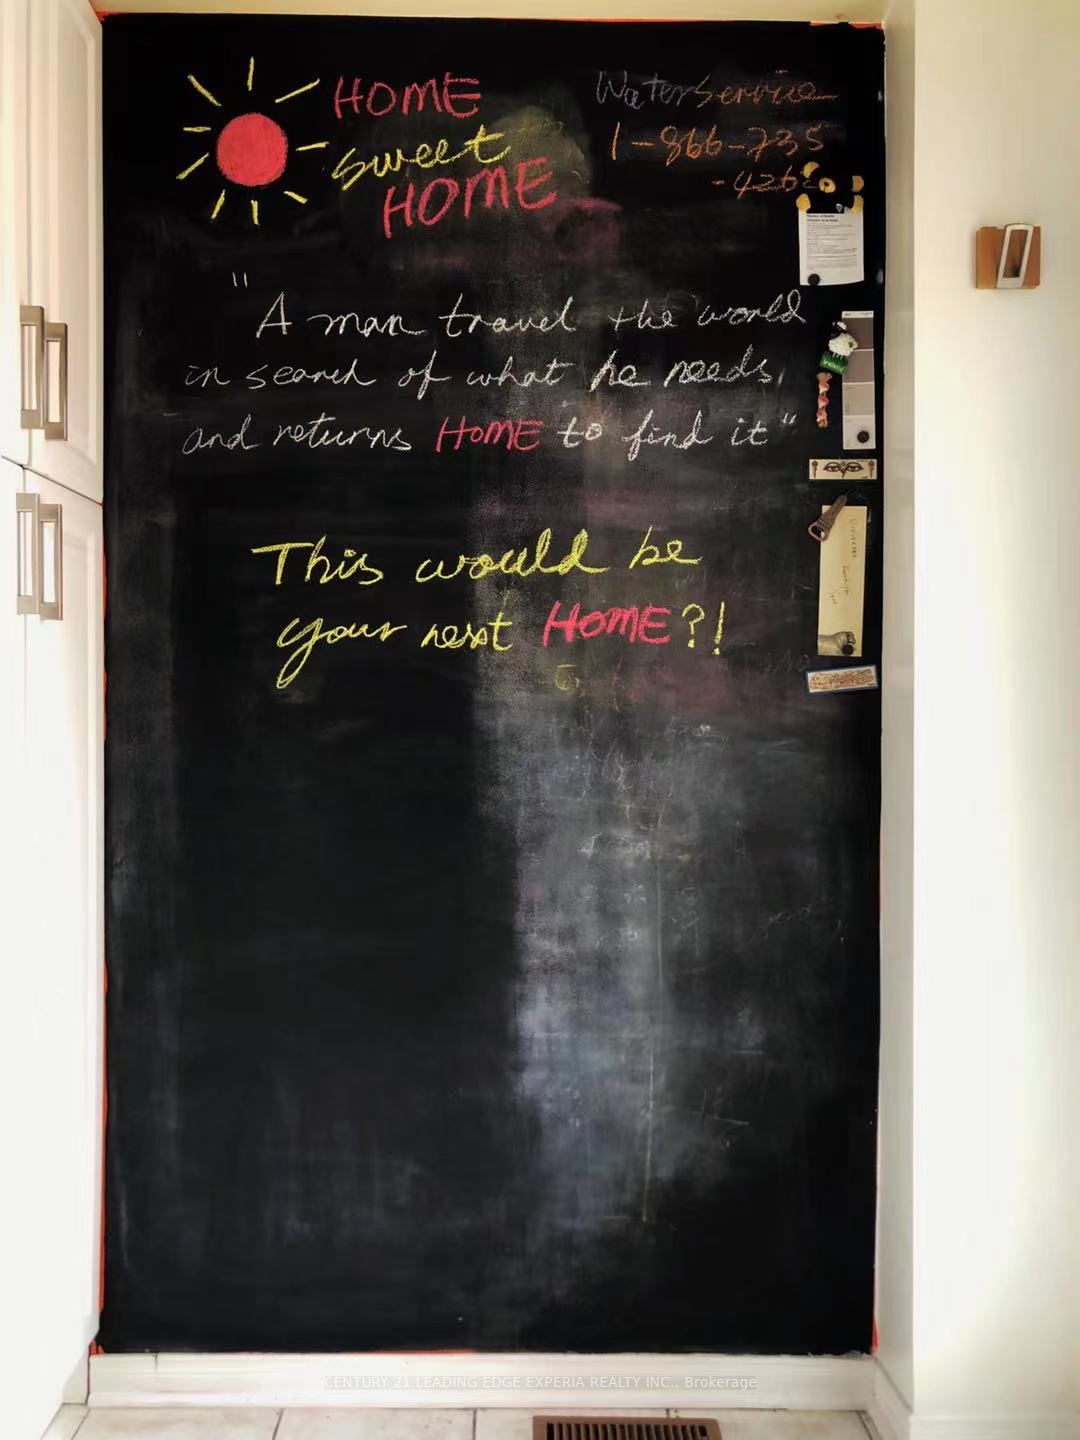 HOME
sweet
HOME
Water Service
1-866-735
-426
"A man travel the world
in search of what he needs,
and returns HOME to find it"
This would be
your next HOME?!
CENTURY 21 LEADING EDGE EXPERIA REALTY INC., Brokerage